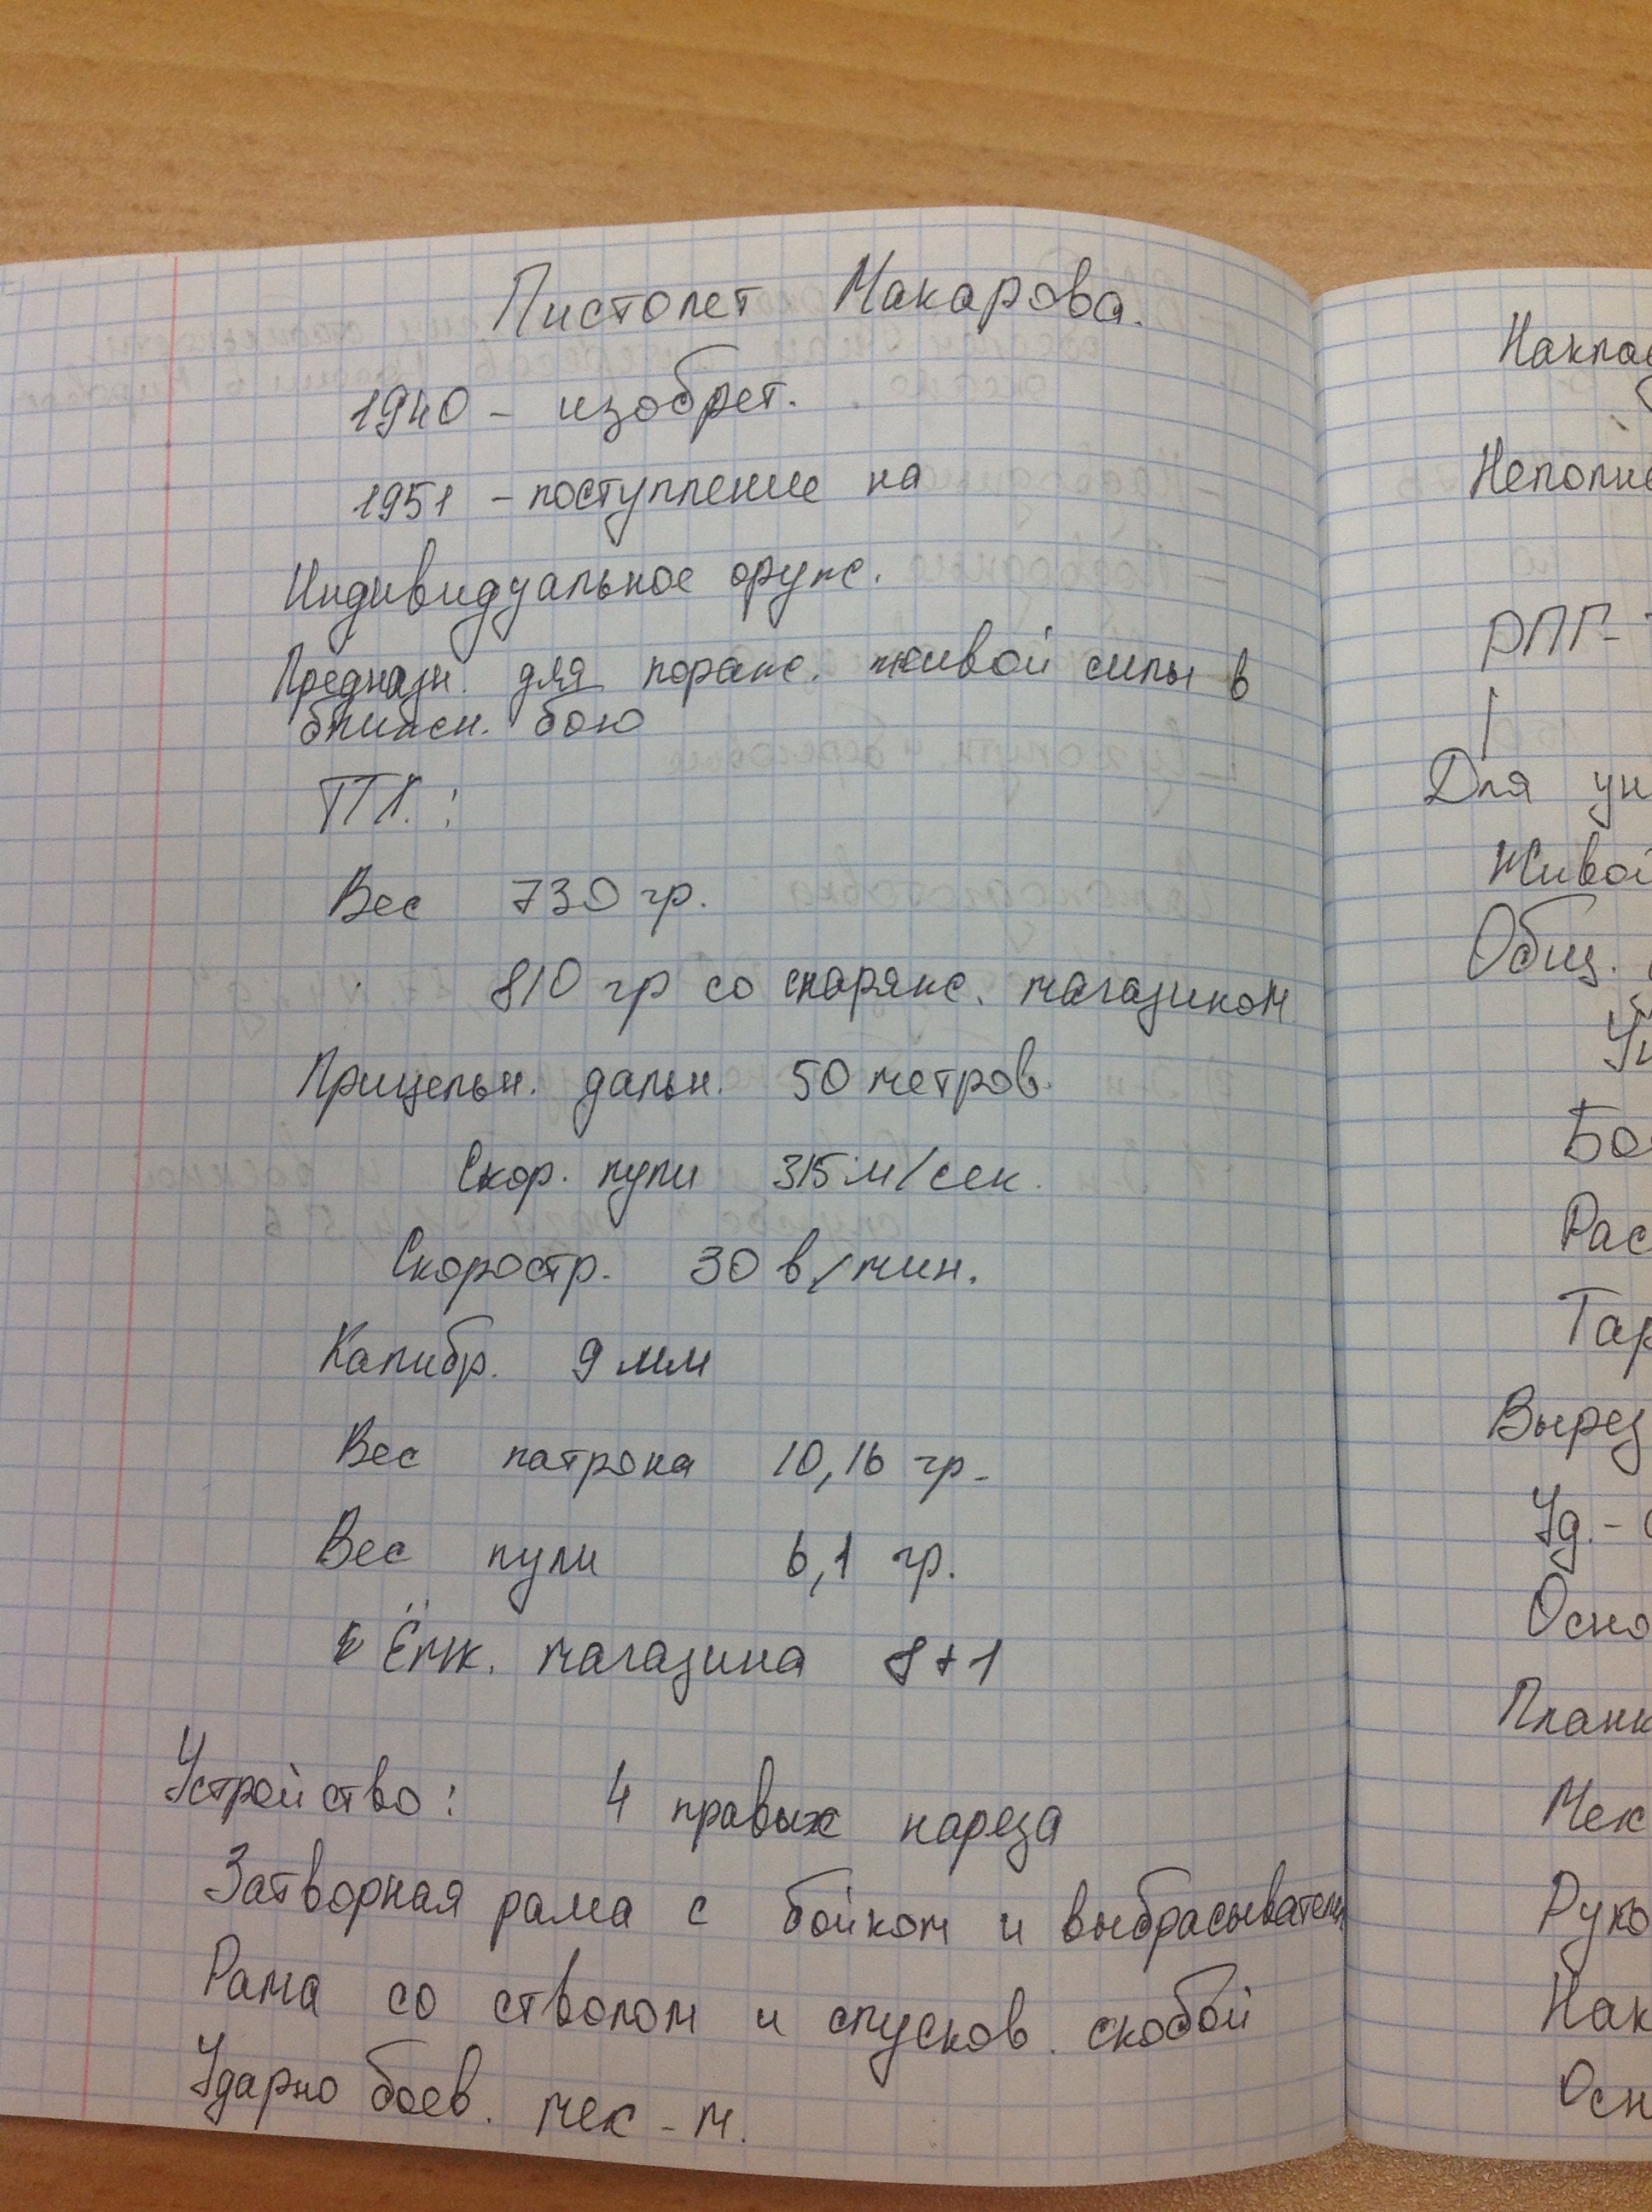 Пистолет Макарова.
1940 - изобрет.
1951 - поступление на
Индивидуальное оруж.
Предназн. для пораж. живой силы в
ближн. бою
ТТХ. :
Вес 730 гр.
810 гр со снаряж. магазином
Прицельн. дальн. 50 метров.
Скор. пули 315 м/сек.
Скоростр. 30 в/мин.
Калибр. 9 мм
Вес патрона 10,16 гр.
Вес пули 6,1 гр.
Ёмк. магазина 8+1
Устройство: 4 правых нареза
Затворная рама с бойком и выбрасывателем
Рама со стволом и спусков. скобой
Ударно боев. мех-м.
Накла
Неполн
РПГ-
Для ун
Живой
Общ.
Бо
Рас
Тар
Вырез
Уд.-
Осно
Планк
Мех
Руко
Нак
Осн